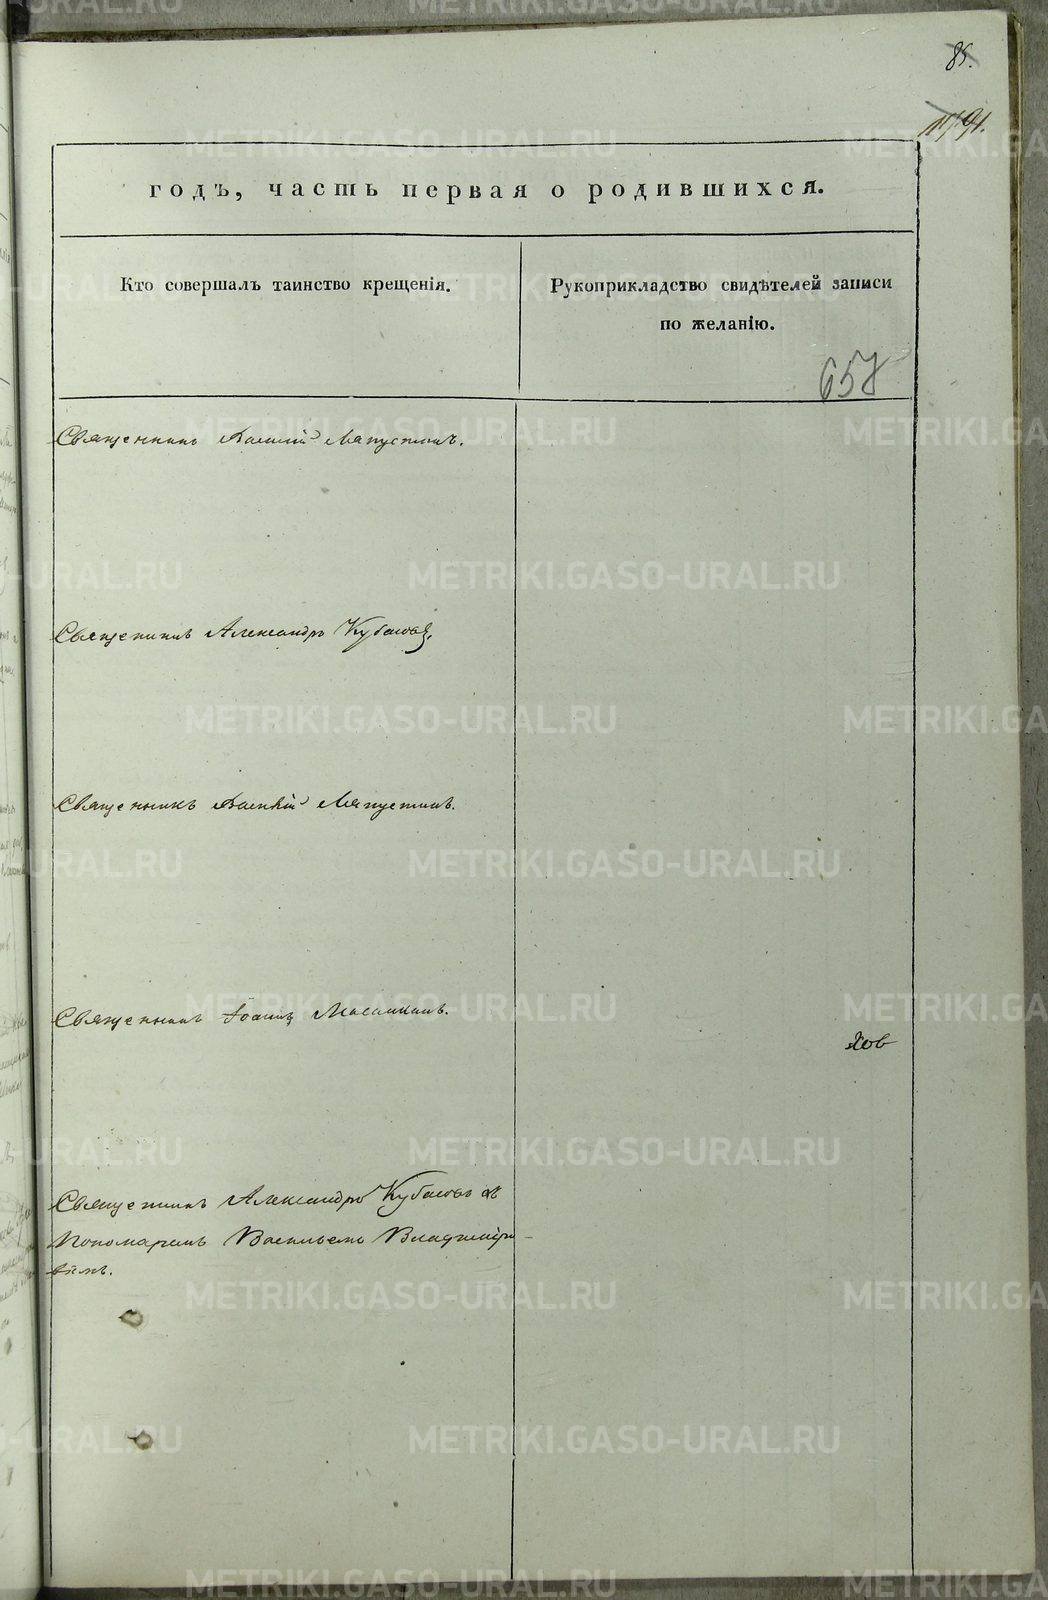 85.
91.
годъ, часть первая о родившихся.
Кто совершалъ таинство крещенія.
Рукоприкладство свидѣтелей записи
по желанію.
657
Священникъ Василій Ляпустинъ.
Священникъ Александръ Кубасовъ.
Священникъ Василій Ляпустинъ.
Священникъ Іоаннъ
Священникъ Александръ Кубасовъ съ
Пономаремъ Васильемъ
METRIKI.GASO-URAL.RU